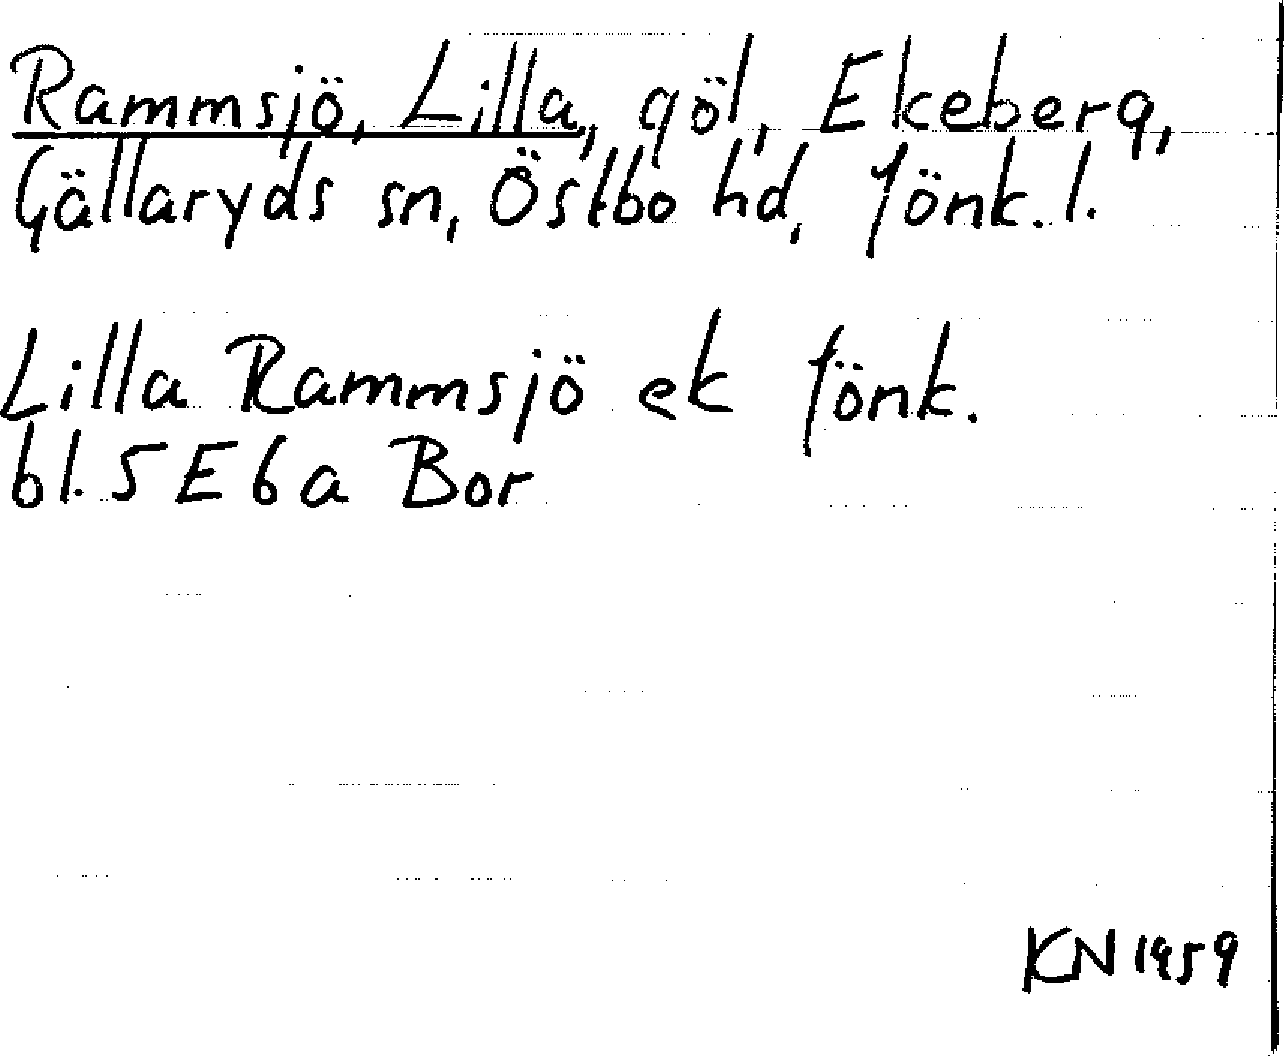 Rammsjö, Lilla, göl, Ekeberg,
Gällaryds sn, Östbo hd, Jönk. l.
Lilla Rammsjö ek Jönk.
bl. 5 E 6 a Bor
KN 1959